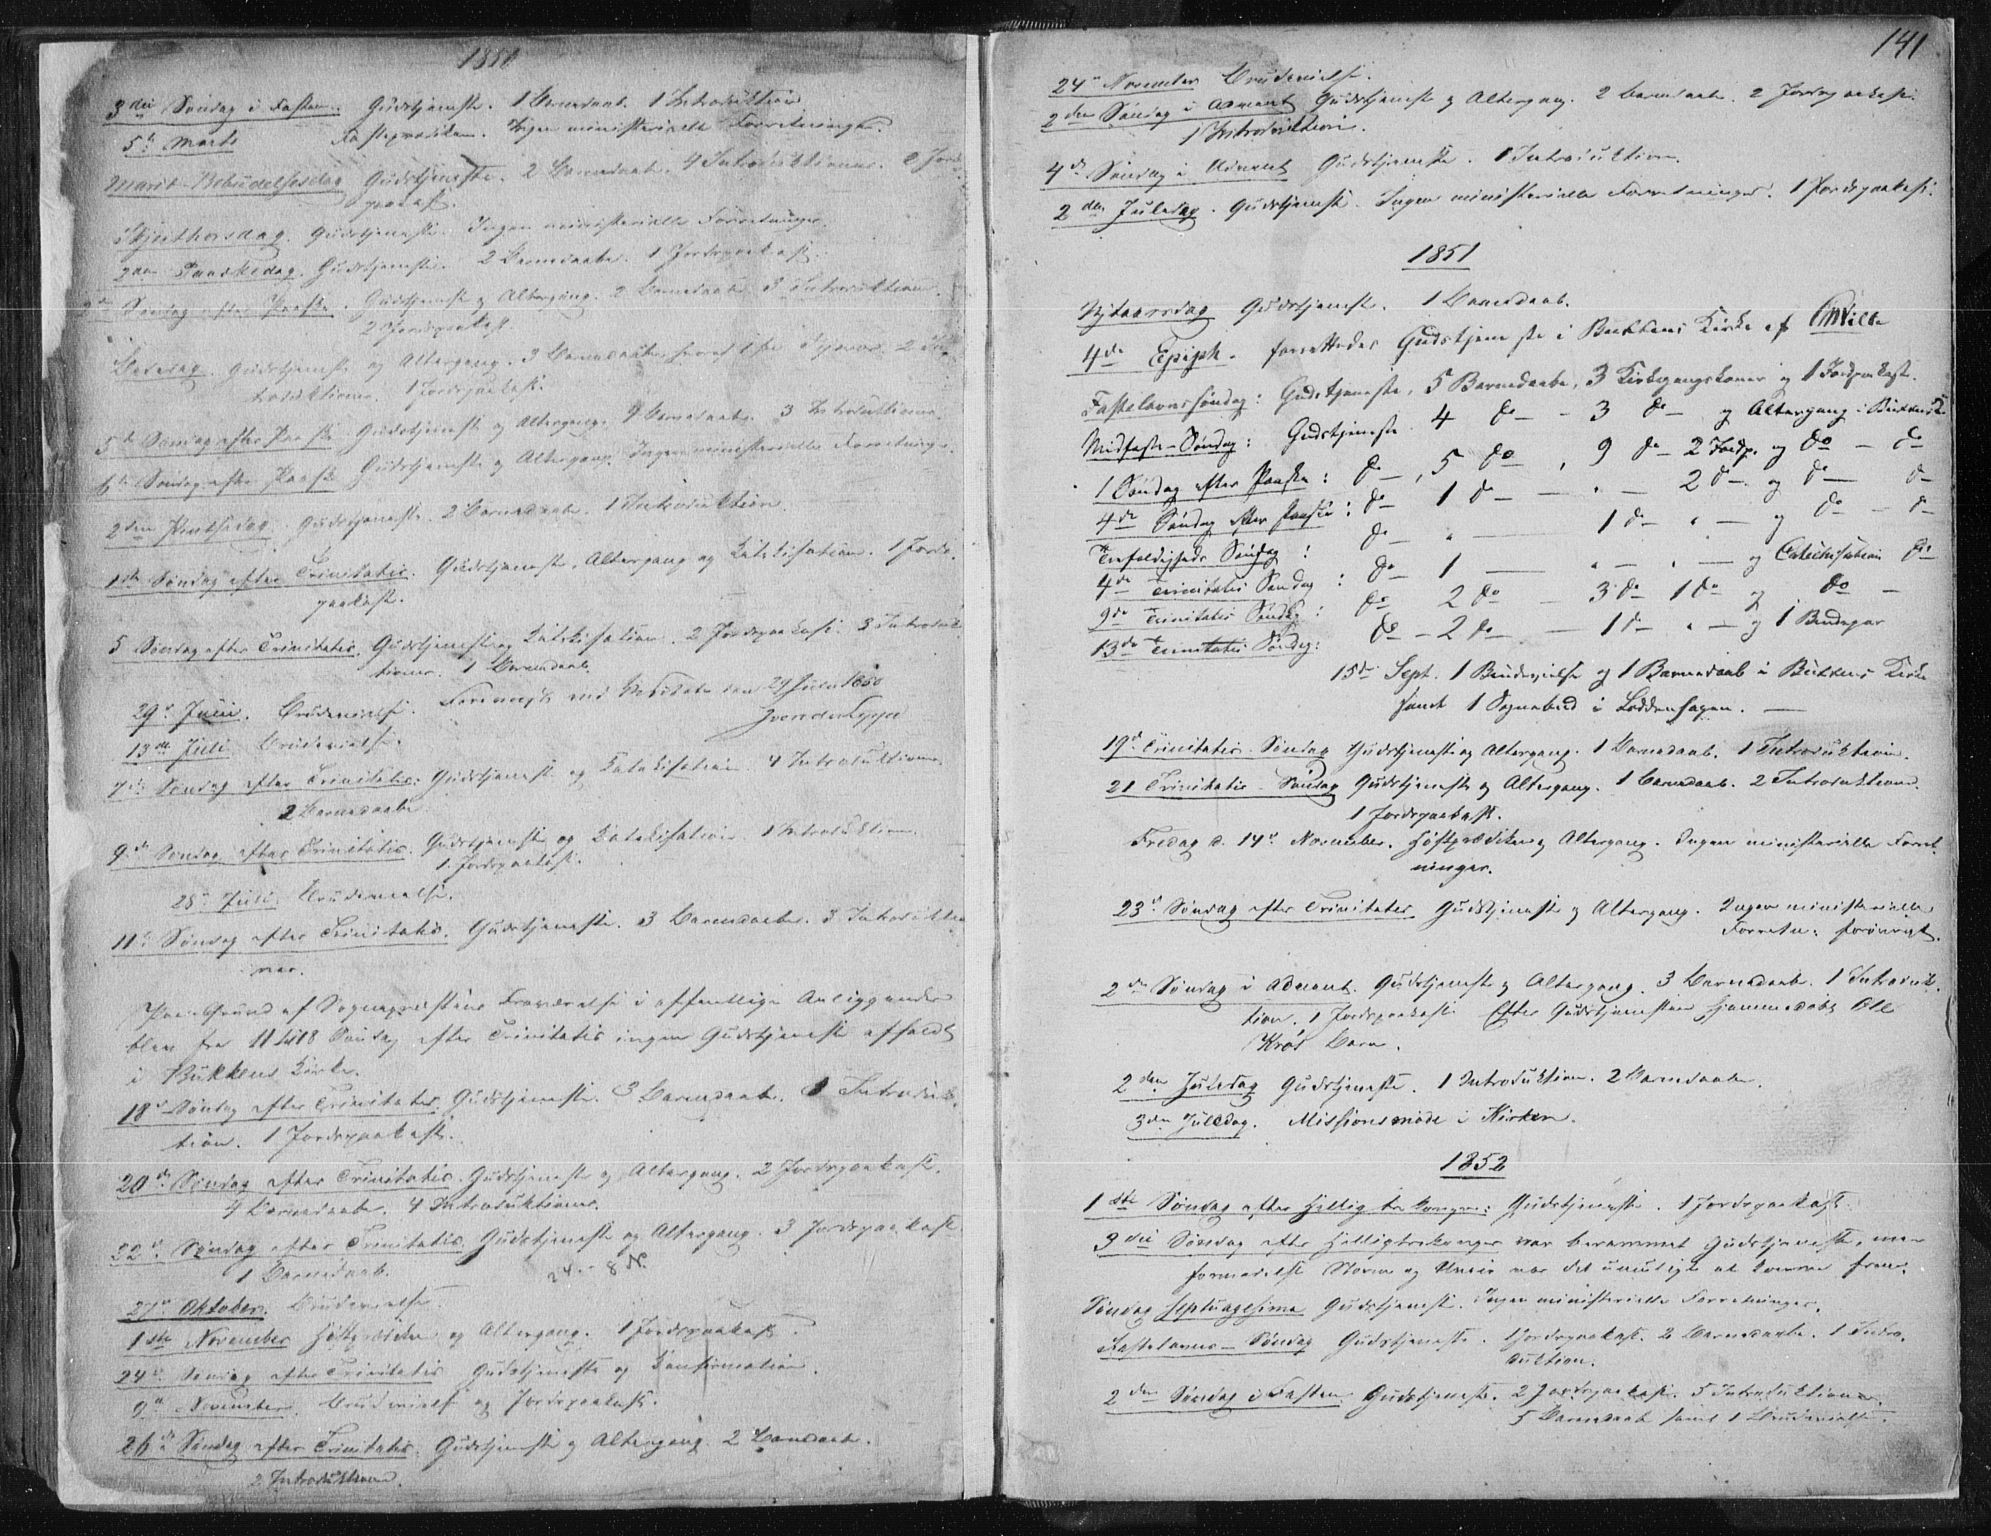 1850
3die Søndag i Fasten. Gudstjeneste. 1 Barnedaab. 1 Introduktion
5te Marts Fasteprædiken. Ingen ministerielle Forretninger.
Mariæ Bebudelsesdag Gudstjeneste. 2 Barnedaab. 4 Introduktioner. 2 Jords-
paakast.
Skjærthorsdag. Gudstjeneste. Ingen ministerielle Forretninger.
2den Paaskedag. Gudstjeneste. 2 Barnedaab. 1 Jordspaakast.
Søndag efter Paaske. Gudstjeneste og Altergang. 2 Barnedaab. 3 Introduktioner.
2 Jordspaakast.
Bededag. Gudstjeneste og Altergang. 3 Barnedaab, 2 In-
troduktioner. 1 Jordspaakast.
5te Søndag efter Paaske Gudstjeneste og Altergang. 9 Barnedaab. 3 Introduktioner.
6te Søndag efter Paaske Gudstjeneste og Altergang. Ingen ministerielle Forretninger.
2den Pintsedag. Gudstjeneste. 2 Barnedaab. 1 Introduktion.
1ste Søndag efter Trinitatis. Gudstjeneste, Altergang og Katekisation. 1 Jords-
paakast.
5 Søndag efter Trinitatis. Gudstjeneste og Katekisation. 2 Jordspaakast. 3 Introduk-
tioner. 1 Barnedaab.
29de Juni. Brudevielse. Forevist ved Visitats den 29 Juli 1850
13de Juli Brudevielse.
7de Søndag efter Trinitatis: Gudstjeneste og Katekisation. 4 Introduktioner
2 Barnedaab
9de Søndag efter Trinitatis. Gudstjeneste og Katekisation. 1 Introduktion.
1 Jordspaakast.
28de Juli Brudevielse.
11te Søndag efter Trinitatis. Gudstjeneste. 3 Barnedaab. 3 Introduktio-
ner.
Paa Grund af Sognepræstens Fraværelse i offentlige Anliggender
blev fra 11 til 18 Søndag efter Trinitatis ingen Gudstjeneste afholdt
i Bukkens Kirke.
18de Søndag efter Trinitatis. Gudstjeneste. 3 Barnedaab. 1 Introduk-
tion. 1 Jordspaakast.
20de Søndag efter Trinitatis. Gudstjeneste og Altergang. 2 Jordspaakast.
4 Barnedaab. 4 Introduktioner.
22de Søndag efter Trinitatis. Gudstjeneste og Altergang. 3 Jordspaakast
1 Barnedaab.
27de Oktober. Brudevielse.
1ste November Høstprædiken og Altergang. 1 Jordspaakast.
24de Søndag efter Trinitatis Gudstjeneste og Konfirmation.
9de November. Brudevielse og Jordspaakast.
26de Søndag efter Trinitatis. Gudstjeneste og Altergang. 2 Barnedaab.
2 Introduktioner.
141
24de November Brudevielse.
2den Søndag i Advent Gudstjeneste og Altergang. 2 Barnedaab. 2 Jordspaakast.
1 Introduktion.
4de Søndag i Advent Gudstjeneste. 1 Introduktion.
2den Juledag. Gudstjeneste. Ingen ministerielle Forretninger. 1 Jordspaakast.
1851
Nytaarsdag Gudstjeneste. 1 Barnedaab.
4de Epiph. forrettedes Gudstjeneste i Bukkens Kirke af
Fastelavnssøndag: Gudstjeneste, 5 Barnedaabe, 3 Kirkegangskoner og 1 Jordpaakast.
Midfaste-Søndag: Gudstjeneste 4 do — 3 do — og Altergang i Bukkens K.
1 Søndag efter Paaske: do —, 5 do, 9 do — 2 Jordp. og do — do
4de Søndag efter Paaske: do — 1 do — " — 2 do — og do — do
Trefoldigheds Søndag: do — " — 1 do — " — og do — do
4de Trinitatis Søndag: do — 1 — " — " — og Catechisation do
9de Trinitatis Søndag: do 2 do — 3 do 1 do og do —
13de Trinitatis Søndag: do — 2 do — 1 do — " — og 1 Brudepar
15de Sept. 1 Brudevielse og 1 Barnedaab i Bukkens Kirke
samt 1 Sognebud i Loddenhagen. —
19de Trinitatis Søndag Gudstjeneste og Altergang. 1 Barnedaab. 1 Introduktion.
21 Trinitatis Søndag Gudstjeneste og Altergang. 1 Barnedaab. 2 Introduktioner.
1 Jordspaakast.
Fredag d. 14de November. Høstprædiken og Altergang. Ingen ministerielle Forret-
ninger.
23de Søndag efter Trinitatis. Gudstjeneste og Altergang. Ingen ministerielle
Forretn: forøvrigt.
2den Søndag i Advent. Gudstjeneste og Altergang. 3 Barnedaab. 1 Introduk-
tion. 1 Jordspaakast. Efter Gudstjenesten hjemmedøbt Ole
Krøs Barn.
2den Juledag Gudstjeneste. 1 Introduktion. 2 Barnedaab.
3die Juledag. Missionsmøde i Kirken.
1852
1ste Søndag efter Hellig tre konger: Gudstjeneste. 1 Jordspaakast.
3die Søndag efter Helligtrekonger var berammet Gudstjeneste, men
formedelst Storm og Uveir var det umuligt at komme frem.
Søndag Septuagesima Gudstjeneste. Ingen ministerielle Forretninger.
Fastelavns-Søndag Gudstjeneste. 1 Jordspaakast. 2 Barnedaab. 1 Intro-
duktion.
2den Søndag i Fasten. Gudstjeneste. 2 Jordspaakast. 5 Introduktioner.
5 Barnedaab samt 1 Brudevielse.